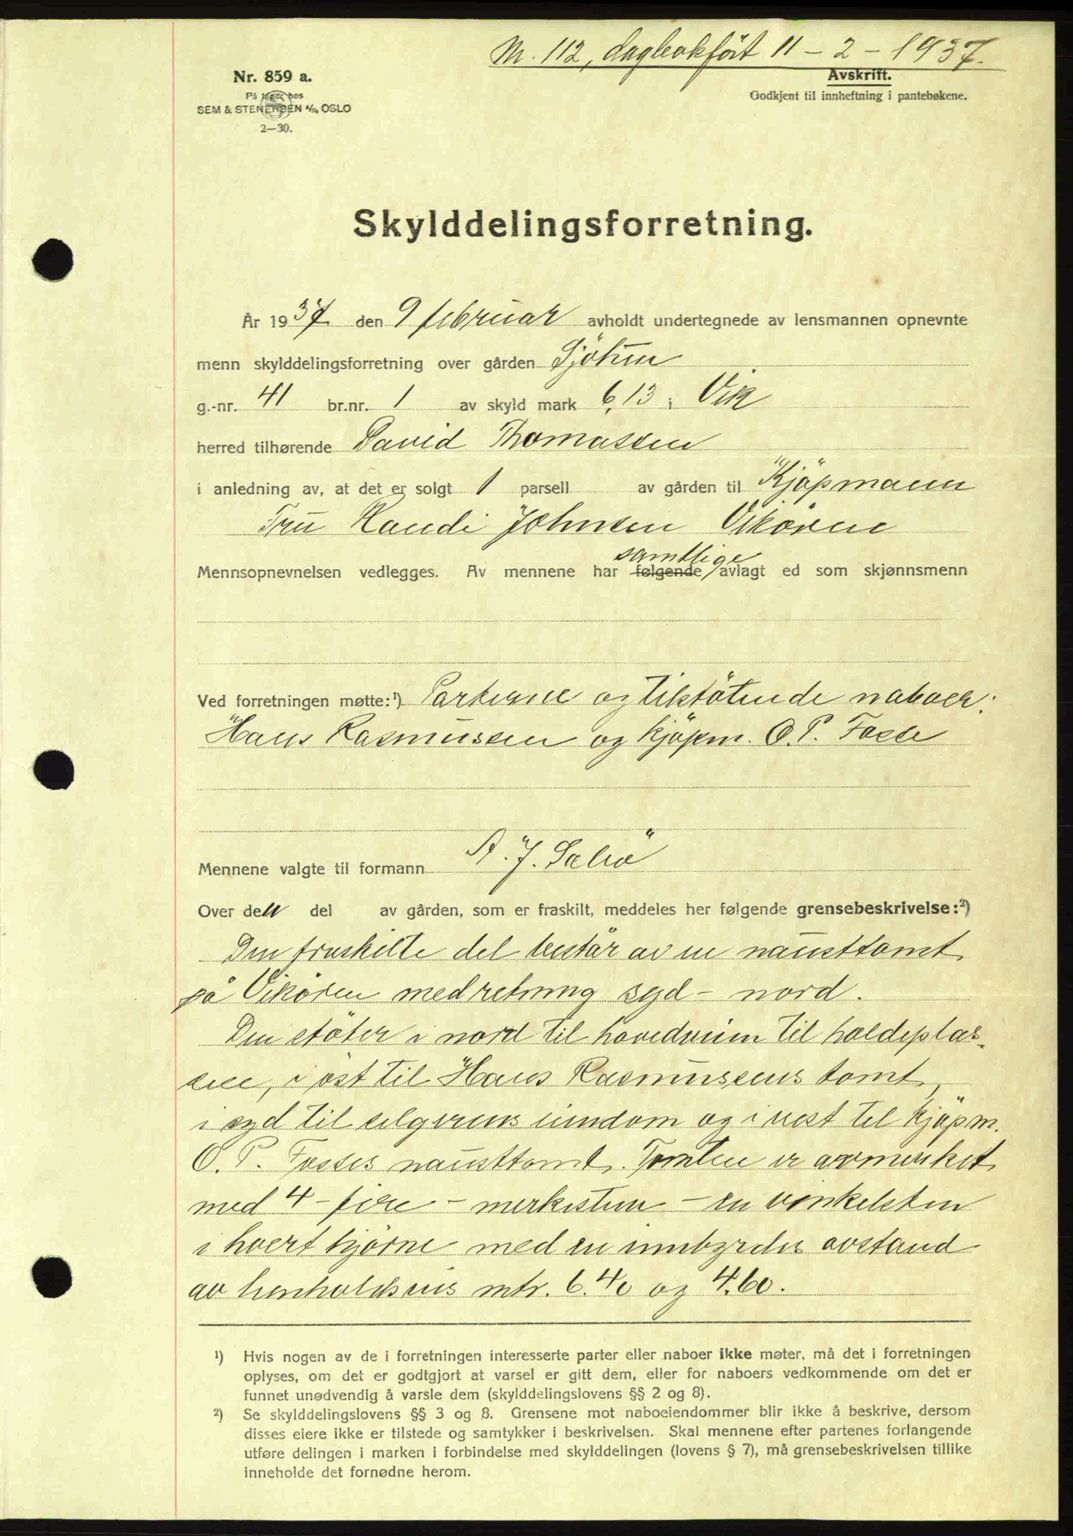 Nr. 112, dagbokført 11 - 2 - 1937.
Nr. 859 a.
På lager hos
SEM & STENERSEN A/S, OSLO
2—30.
Avskrift.
Godkjent til innheftning i pantebøkene.
Skylddelingsforretning.
År 1937 den 9 februar avholdt undertegnede av lensmannen opnevnte
menn skylddelingsforretning over gården Sjötun
g.-nr. 41 br.nr. 1 av skyld mark 6,13 i Vik
herred tilhørende David Thomassen
i anledning av, at det er solgt 1 parsell av gården til Kjöpmann
Fru Kandi Johnsen Vikøren
samtlige
Mennsopnevnelsen vedlegges. Av mennene har følgende avlagt ed som skjønnsmenn
Ved forretningen møtte:¹) Parterne og tilstötende naboer:
Hans Rasmussen og kjöpm. O. P. Fosse
Mennene valgte til formann A. J. Sæbø
Over den del av gården, som er fraskilt, meddeles her følgende grensebeskrivelse:²)
Den fraskilte del består av en nausttomt
på Vikøren med retning syd - nord.
Den stöter i nord til hovedveien til holdeplas-
sen, i øst til Hans Rasmussens tomt,
i syd til selgerens eiendom og i vest til kjöpm.
O. P. Fosses nausttomt. Tomten er avmerket
med 4 - fire - merkestene - en vinkelsten
i hvert hjørne med en innbyrdes avstand
av henholdsvis mtr. 6.40 og 4.60.
¹) Hvis nogen av de i forretningen interesserte parter eller naboer ikke møter, må det i forretningen
oplyses, om det er godtgjort at varsel er gitt dem, eller for naboers vedkommende om det er
funnet unødvendig å varsle dem (skylddelingslovens §§ 2 og 8).
²) Se skylddelingslovens §§ 3 og 8. Grensene mot naboeiendommer blir ikke å beskrive, dersom
disses eiere ikke er tilstede og samtykker i beskrivelsen. Skal mennene efter partenes forlangende
utføre delingen i marken i forbindelse med skylddelingen (lovens § 7), må grensebeskrivelsen tillike
inneholde det fornødne herom.